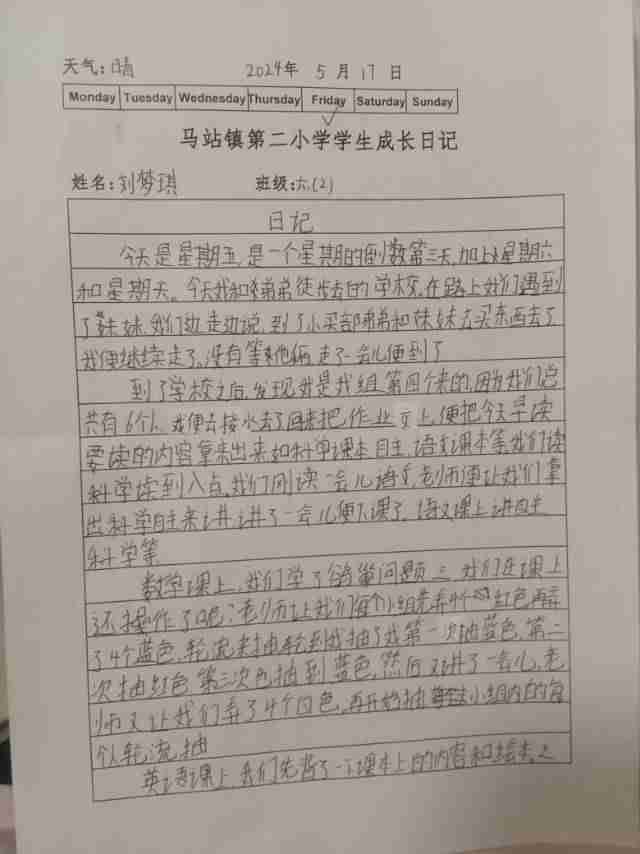 天气:晴 2024年 5月17日
Monday Tuesday Wednesday Thursday Friday Saturday Sunday
马站镇第二小学学生成长日记
姓名:刘梦琪 班级:六(2)
日记
今天是星期五,是一个星期的倒数第三天,加上星期六
和星期天。今天我和弟弟徒步去的学校,在路上我们遇到
了妹妹,我们边走边说,到了小买部弟弟和妹妹去买东西去了
我便继续走了,没有等他俩,走了一会儿便到了
到了学校之后,发现我是我组第四个来的,因为我们总
共有6个人,我便去接水去了回来把作业交上,便把今天早读
要读的内容拿出来如科学课本自主,语文课本等我们读
科学读到八点,我们刚读一会儿语文,老师便让我们拿
出科学自主来讲,讲了一会儿便下课了,语文课上讲自主
科学等
数学课上,我们学了鸽巢问题三,我们在课上
还操作了呢?老师让我们每个小组先弄4个红色再弄
了4个蓝色,轮流来抽轮到我抽了我第一次抽蓝色,第二
次抽红色第三次抽到蓝色,然后又讲了一会儿,老
师又让我们弄了4个白色,再开始抽小组内的每
个人轮流抽
英语课上,我们先背了一下课本上的内容和绘本,之